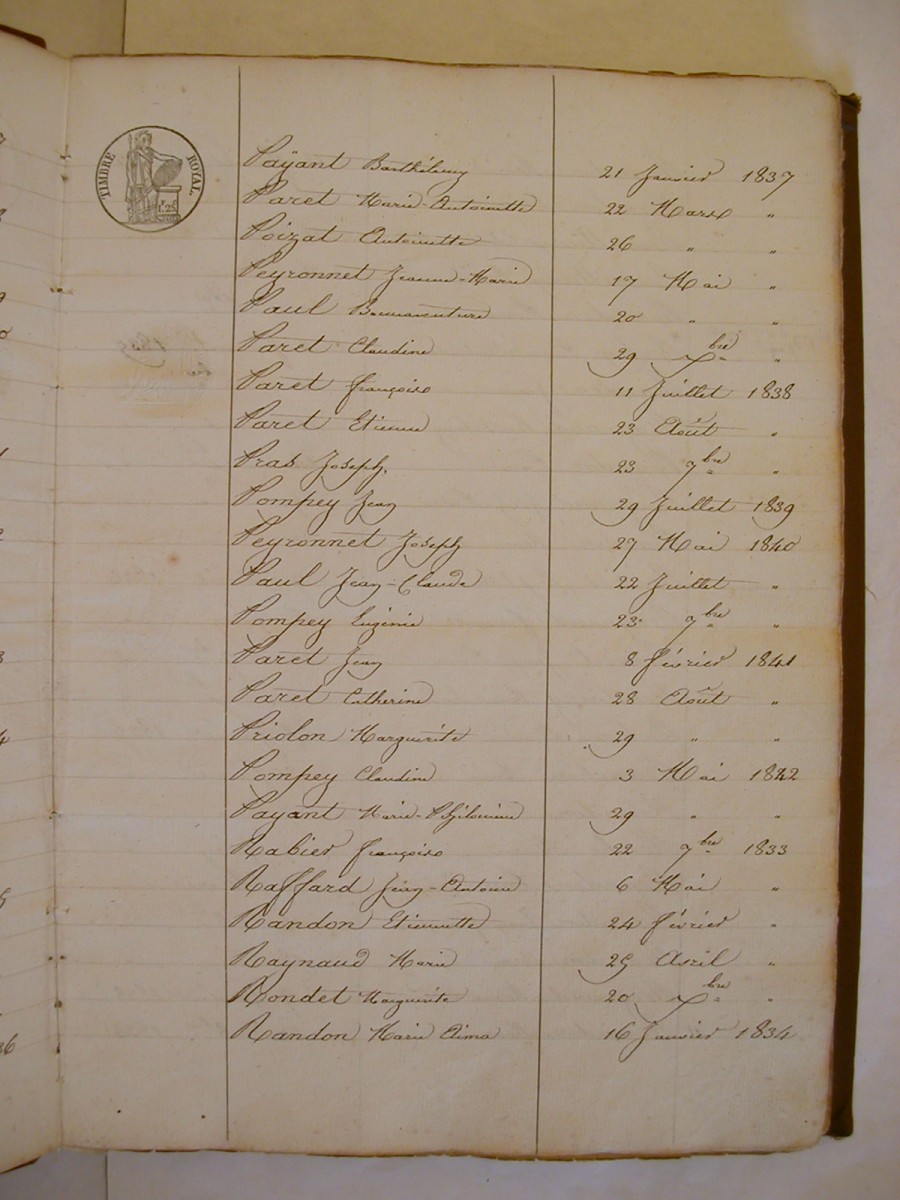 TIMBRE ROYAL
1F. 25c
Paÿant Barthélemy 21 Janvier 1837
Paret Marie-Antoinette 22 Mars "
Poizat Antoinette 26 " "
Peyronnet Jeanne-Marie 17 Mai "
Paul Bonnaventure 20 " "
Paret Claudine 29 Xbre "
Paret françoise 11 Juillet 1838
Paret Etienne 23 Août "
Pras Joseph. 23 7bre "
Pompey Jean 29 Juillet 1839
Peyronnet Joseph 27 Mai 1840
Paul Jean-Claude 22 Juillet "
Pompey Eugénie 23 7bre "
Paret Jean 8 février 1841
Paret Catherine 28 Août "
Priolon Marguérite 29 " "
Pompey Claudine 3 Mai 1842
Payant Marie-Philomine 29 " "
Rabier françoise 22 7bre 1833
Raffard Jean-Antoine 6 Mai "
Randon Etiennette 24 février "
Raynaud Marie 25 Avril "
Rondet Marguérite 20 Xbre "
Randon Marie Aima 16 Janvier 1834